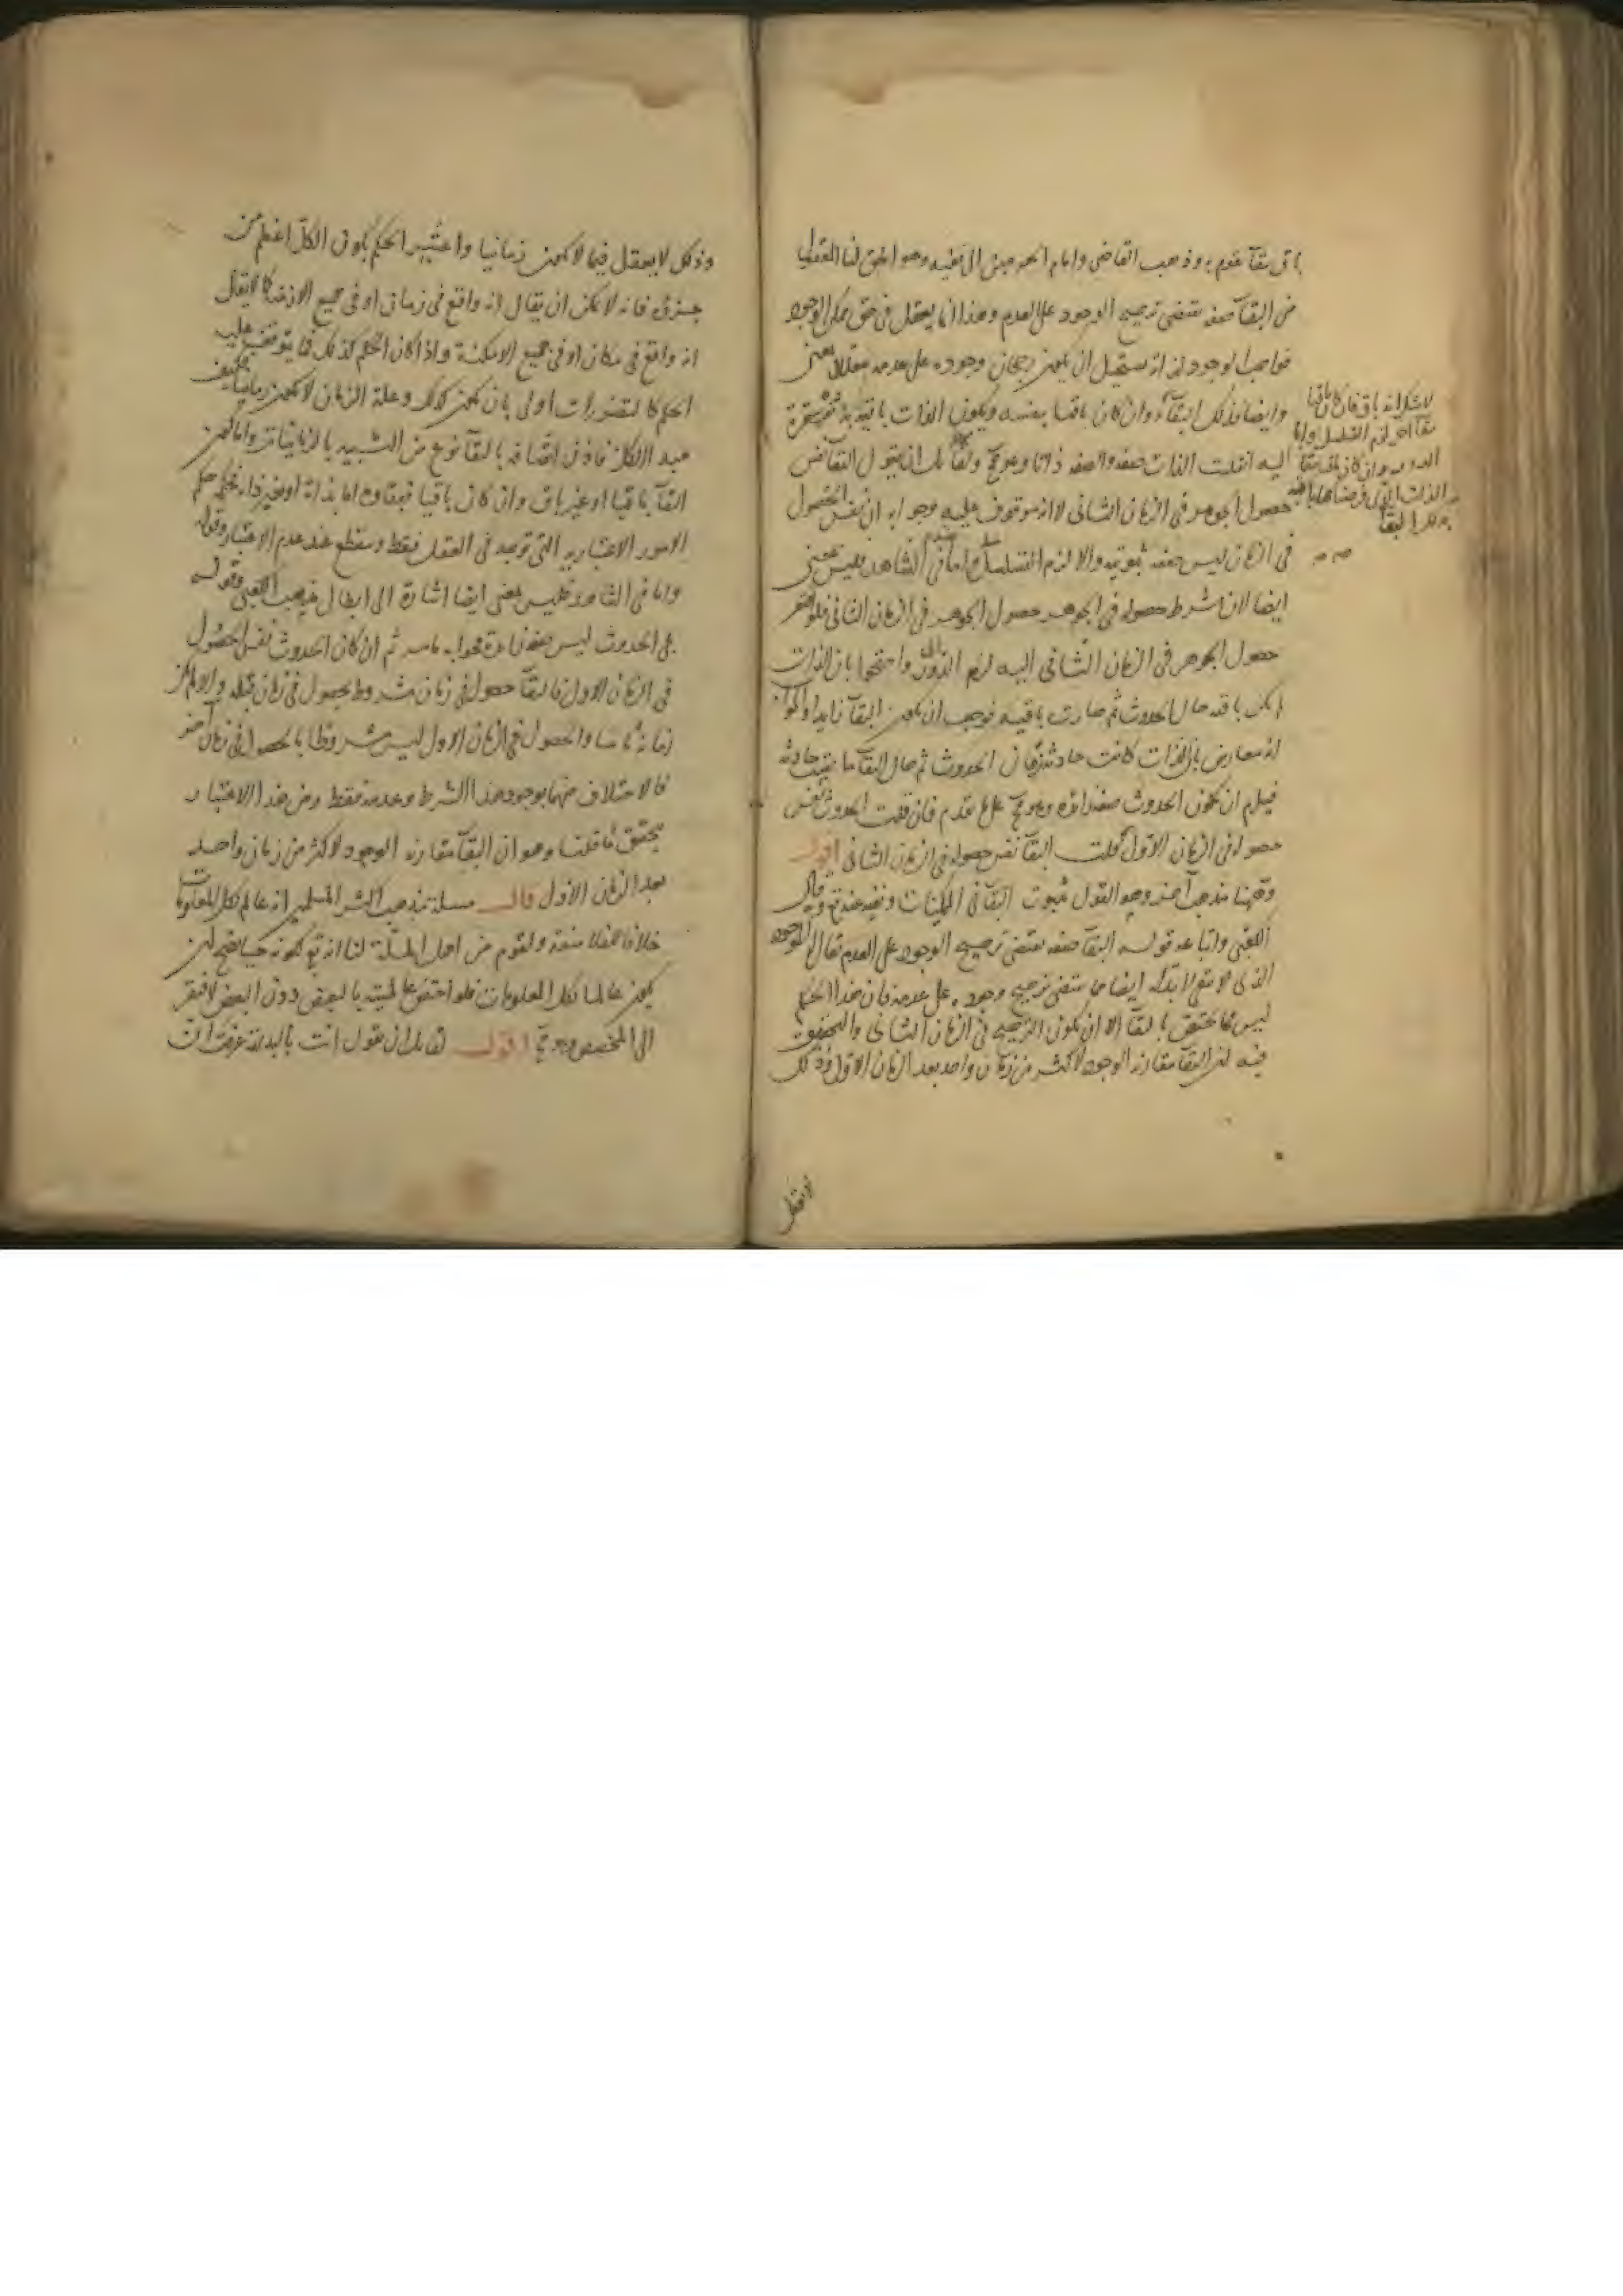 باق ببقاء يقوم به وذهب القاضى وامام الحرمين الى نفيه وهو الحق لنا المعقول
من البقاء صفه تقتضى ترجيح الوجود على العدم وهذا انما يعقل فى حق ممكن الوجود
فواجب الوجود لذاته يستحيل ان يكون رجحان وجوده على عدمه معللا بمعنى
وايضا فذلك البقاء وان كان باقيا بنفسه ويكون الذات باقية به مفتقرة
اليه انقلبت الذات صفه والصفه ذاتا وهو مح ولقائل ان يقول البقا نفس
حصول الجوهر فى الزمان الثانى لا انه موقوف عليه وجوابه ان نفس الحصول
فى الزمان ليس صفه ثبوتيه والا لزم التسلسل واما فى الشاهد فليس بمعنى
ايضا لان شرط حصوله فى الجوهر حصول الجوهر فى الزمان الثانى فلو افتقر
حصول الجوهر فى الزمان الثانى اليه لزم الدور واحتجوا بان الذات
لم يكن باقيه حال الحدوث ثم صارت باقيه فوجب ان يكون البقا زايدا والجواب
انه معارض بان الذات كانت حادثه زمان الحدوث ثم حال البقا ما بقيت حادثه
فيلزم ان يكون الحدوث صفه زائده وهو مح على ما تقدم فان قلت الحدوث نفس
حصوله فى الزمان الاول قلت البقا نفس حصوله فى الزمان الثانى اقول
وههنا مذهب آخر وهو القول بثبوت البقا فى الممكنات ونفيه عنه تع وقال
الكعبى واتباعه قوله البقا صفه تقتضى ترجيح الوجود على العدم يقال الموجود
الذى لا يبقى لا بد له ايضا مما يقتضى ترجيح وجوده على عدمه فان هذا الحكم
ليس مما يختص بالبقا الا ان يكون الترجيح فى الزمان الثانى والتحقيق
فيه ان البقا مقارنه الوجود لاكثر من زمان واحد بعد الزمان الاول وذلك
لا شك انه باق فان كان باقيا
ببقا آخر لزم التسلسل واما
الدور وان كان باقيا ببقا
الذات التى فرضناها باقيه
بذلك البقا
وذلك لا يعقل فيما لا يكون زمانيا واعتبر الحكم بكون الكل اعظم من
جزؤه فانه لا يمكن ان يقال انه واقع فى زمان او فى جميع الازمنه كما لا يقال
انه واقع فى مكان او فى جميع الامكنة واذا كان الحكم كذلك فما يتوقف عليه
الحكم كالتصورات اولى بان يكون كذلك وعلة الزمان لا يكون زمانيا فكيف
مبدا الكل فاذن اتصافه بالبقا نوع من التشبيه بالزمانيات واما كون
البقا باقيا او غير باق وان كان باقيا فبقاوه اما بذاته او بغير ذاته فحكمه حكم
الامور الاعتباريه التى توجد فى العقل فقط وينقطع عند عدم الاعتبار وقوله
واما فى الشاهد فليس بمعنى ايضا اشارة الى ابطال مذهب الكعبى وقوله
فى الحدوث ليس صفه زائدة فجوابه ما مر ثم ان كان الحدوث نفس الحصول
فى الزمان الاول فالبقا حصول فى زمان مشروط بحصول فى زمان قبله والا لم يكن
زمانه ثانيا والحصول فى الزمان الاول ليس مشروطا بالحصول فى زمان آخر
فالاختلاف بينهما بوجود هذا الشرط وعدمه فقط ومن هذا الاعتبار
يتحقق ما قلنا وهو ان البقا مقارنه الوجود لاكثر من زمان واحد
بعد الزمان الاول قال مسلة مذهب اكثر المسلمين انه عالم بكل المعلومات
خلافا للفلاسفة ولقوم من اهل الملة لنا انه تع لكونه حيا يصح ان
يكون عالما بكل المعلومات فلو اختص عالميته بالبعض دون البعض لافتقر
الى المخصص وهو مح اقول لقائل ان يقول انت بالبداية عرفت ان